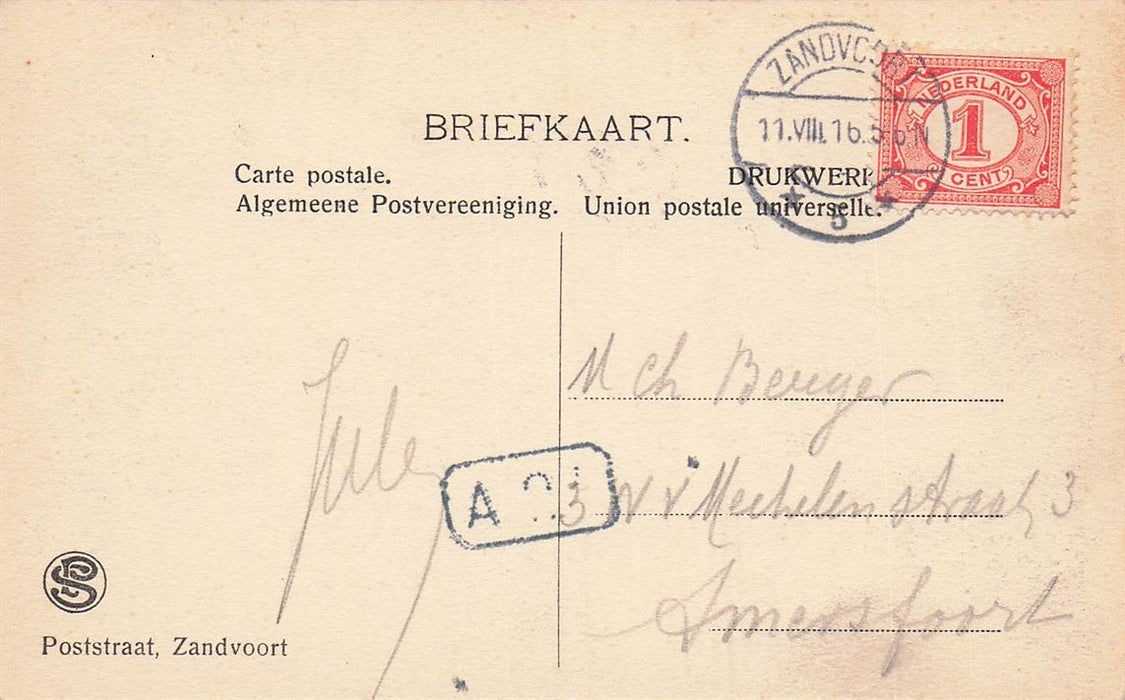 BRIEFKAART.
Carte postale.
DRUKWERK
Algemeene Postvereeniging. Union postale universelle.
ZANDVOORT
11.VIII.16.5-6N
5
NEDERLAND
1
CENT
M Ch Berger
3 N v Mechelen straat 3
Amersfoort
A
SP
Poststraat, Zandvoort